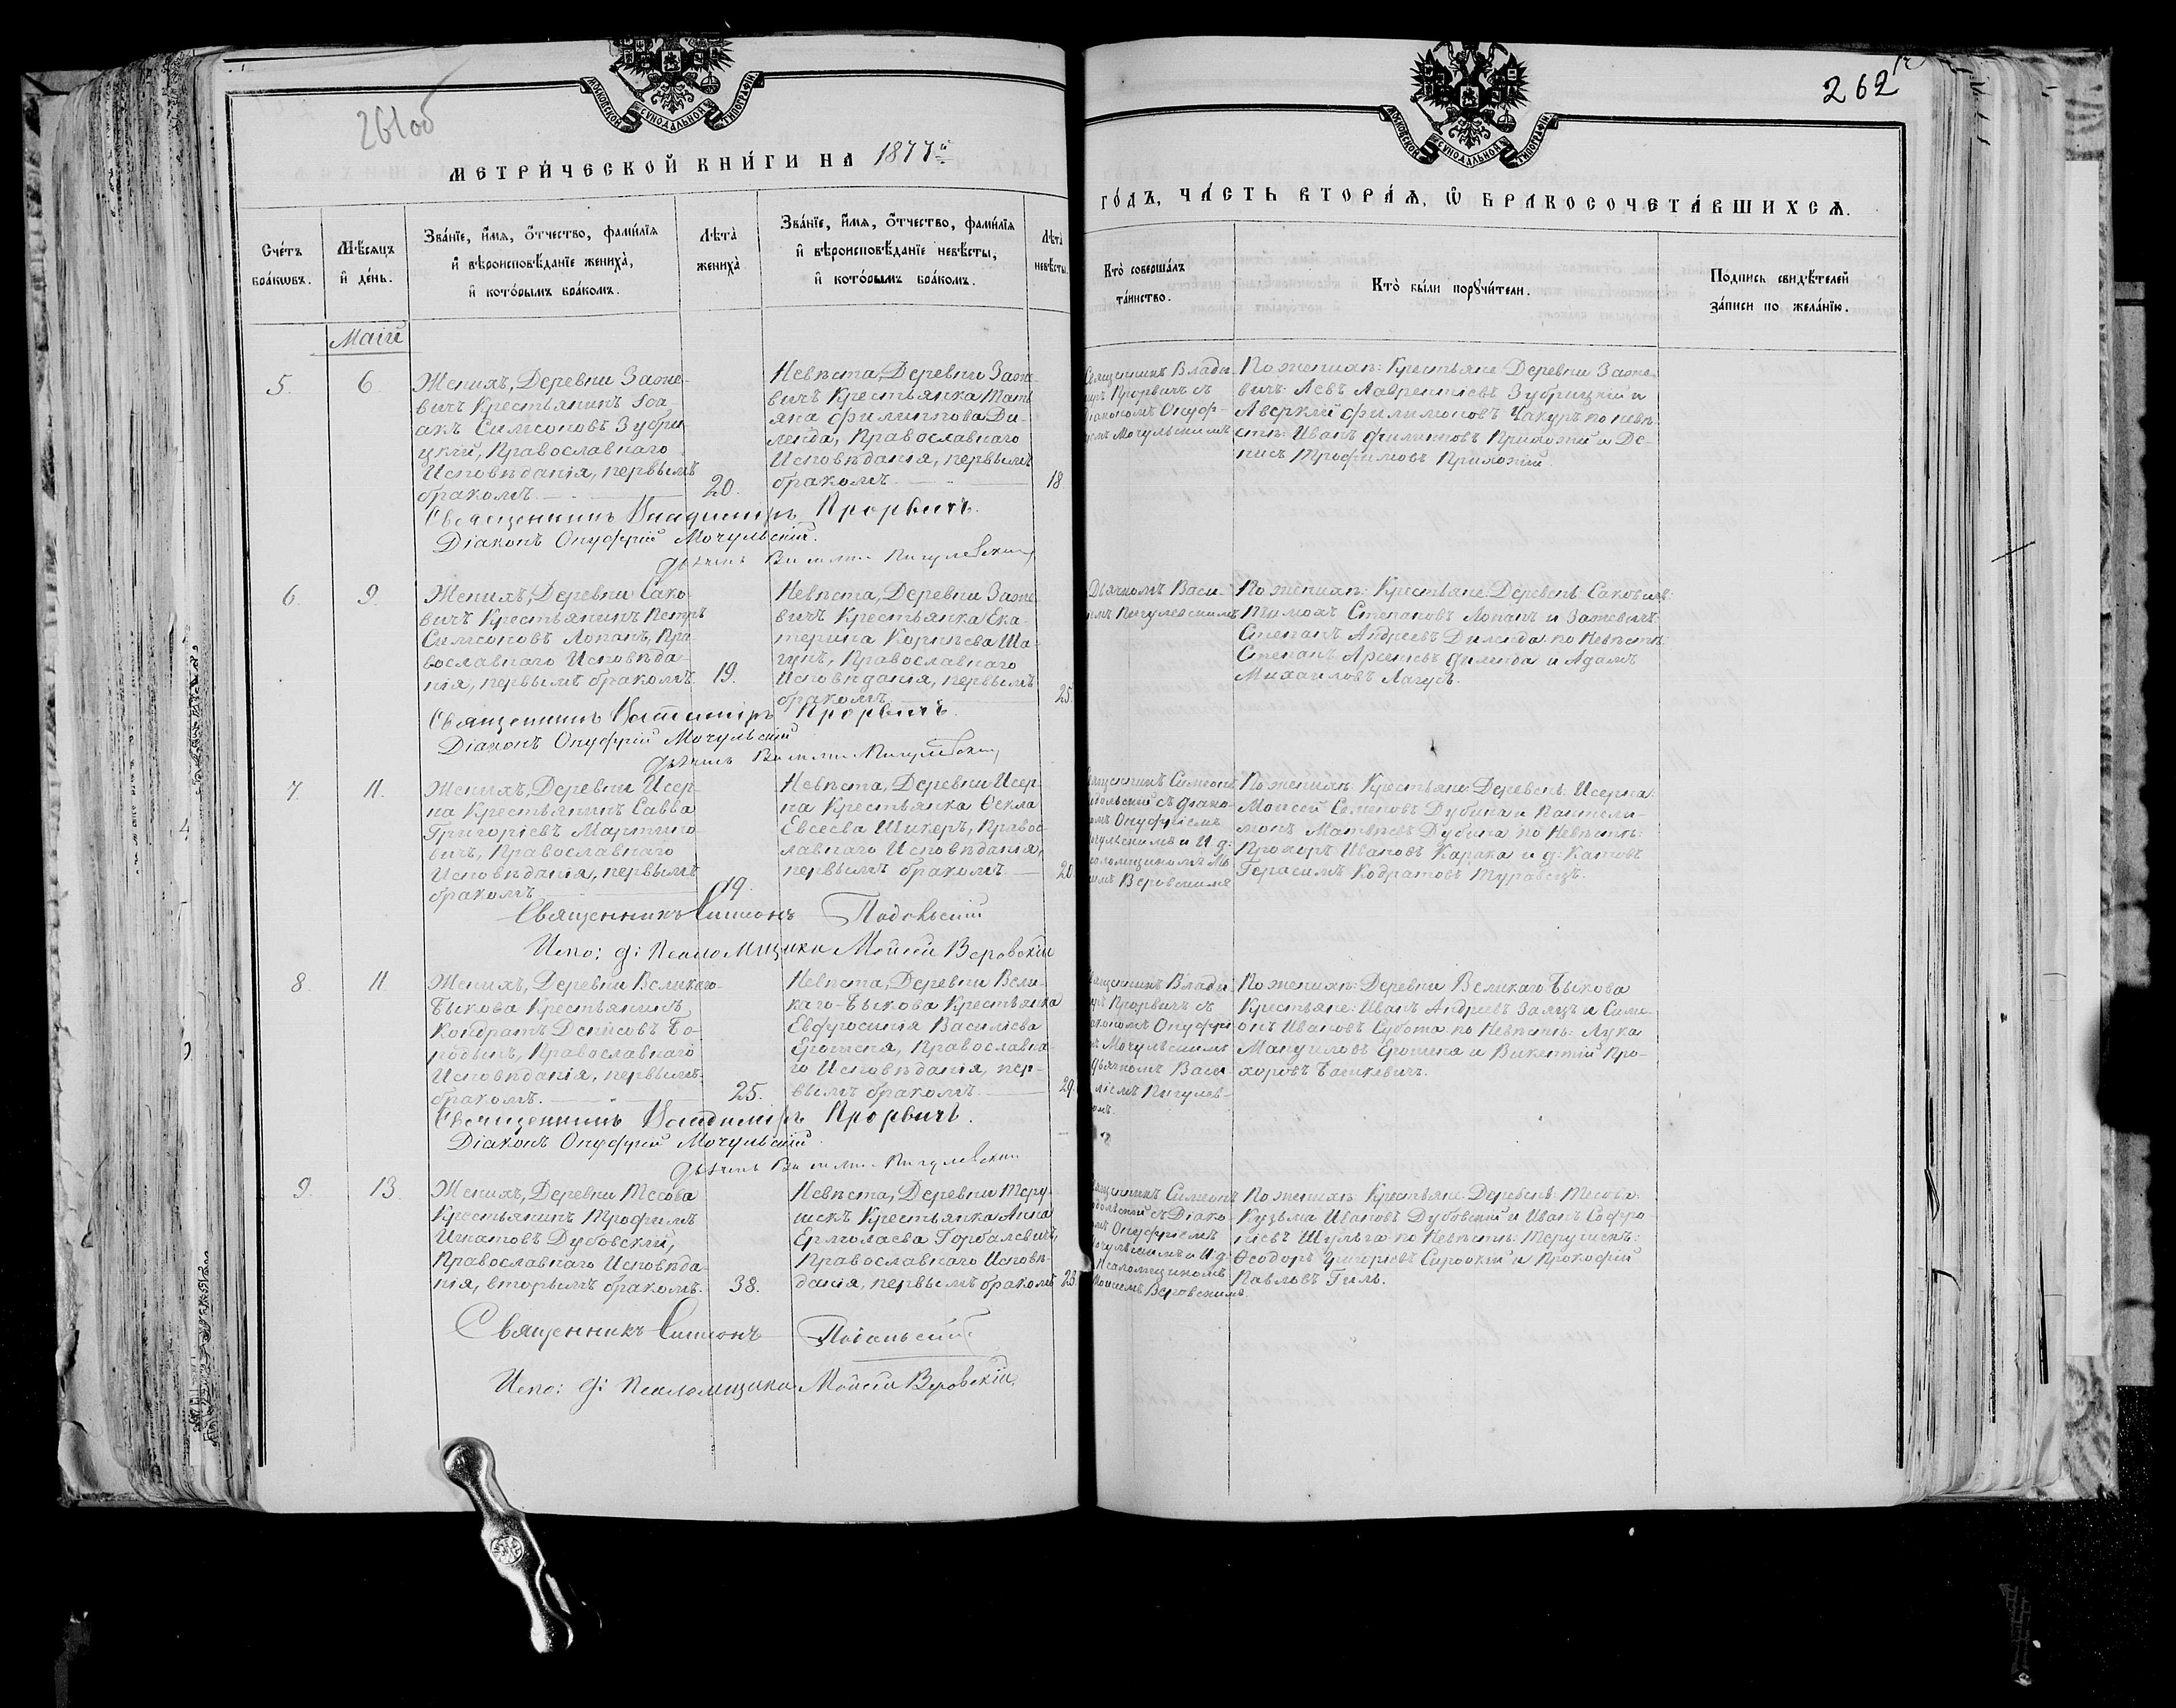 261об
262
МОСКОВСКОЙ СѴНОДАЛЬНОЙ ТИПОГРАФІИ
МОСКОВСКОЙ СѴНОДАЛЬНОЙ ТИПОГРАФІИ
МЕТРИ́ЧЕСКОЙ КНИ́ГИ НА 1877й
ГО́ДЪ, ЧА́СТЬ ВТОРА́Я, Ѡ҆ БРАКОСОЧЕТА́ВШИХСЯ.
Сче́тъ
бра́кѡвъ.
Мѣ́сяцъ
и҆ де́нь.
Зва́нїе, и҆́мя, ѻ҆́тчество, фами́лїя
и҆ вѣроисповѣ́данїе жениха̀,
и҆ кото́рымъ бра́комъ.
Лѣта̀
жениха̀
Зва́нїе, и҆́мя, ѻ҆́тчество, фами́лїя
и҆ вѣроисповѣ́данїе невѣ́сты,
и҆ кото́рымъ бра́комъ.
Лѣта̀
невѣ́сты.
Кто̀ соверша́лъ
та́инство.
Кто̀ бы́ли порꙋчи́тели.
По́дпись свидѣ́телей
за́писи по жела́нїю.
Маій
5.
6
Женихъ, Деревни Заже-
вичъ Крестьянинъ Іоа-
акъ Симеоновъ Зубри-
цкій, Православнаго
Исповѣданія, первымъ
бракомъ
20.
Невѣста, Деревни Заже-
вичъ Крестьянка Тать
яна Филиппова Ди-
ленда, Православнаго
Исповѣданія, первымъ
бракомъ
18
Священникъ Влади
миръ Прорвичъ съ
Діакономъ Онуф-
Мочульскимъ
По женихѣ: Крестьяне Деревни Заже-
вичъ: Левъ Лаврентіевъ Зубрицкій и
Аверкій Филимоновъ Чакуръ по невѣ-
стѣ: Иванъ Филипповъ Прихожій и Де-
нисъ Трофимовъ Прихожій.
Священникъ Владиміръ Прорвичъ.
Діаконъ Онуфрій Мочульскій.
Дьячекъ Василій Пигулевскій
6.
9.
Женихъ, Деревни Сако-
вичъ Крестьянинъ Петръ
Симеоновъ Лопанъ, Пра
вославнаго Исповѣда-
нія, первымъ бракомъ.
19.
Невѣста, Деревни Заже
вичъ Крестьянка Ека-
терина Корнѣева Ша-
гунъ, Православнаго
Исповѣданія, первымъ
бракомъ
25.
Дьячкомъ Васи-
Пигулевскимъ
По женихѣ: Крестьяне Деревень: Саковичъ:
Степановъ Лопанъ и Зажевичъ:
Степанъ Андреевъ Диленда по Невѣстѣ:
Степанъ Арсеніевъ Диленда и Адамъ
Михаиловъ Лагунъ.
Священникъ Владиміръ Прорвичъ.
Діаконъ Онуфрій Мочульскій
Дьячекъ Василій Пигулевскій
7.
11.
Женихъ, Деревни Исер-
на Крестьянинъ Савва
Григоріевъ Мартино-
вичъ, Православнаго
Исповѣданія, первымъ
бракомъ
19.
Невѣста, Деревни Исер-
на Крестьянка Ѳекла
Евсеева Шикеръ, Правос-
лавнаго Исповѣданія,
первымъ бракомъ
20
Священникъ Симеонъ
Подольскій съ Діако-
номъ Онуфріемъ
Мочульскимъ и И. д:
Псаломщикомъ
Веровскимъ
По женихѣ: Крестьяне: Деревень: Исерна:
Моисей Семеновъ Дубина и Пантели-
монъ Матвѣевъ Дубина по Невѣстѣ:
Прохоръ Ивановъ Карака и д: Катовъ
Герасимъ Кодратовъ Туравецъ.
Священникъ Симеонъ Подольскій
Испо: д: Псаломщика Мойсей Веровскій
8.
11
Женихъ, Деревни Великаго-
Быкова Крестьянинъ
Кондратъ Денисовъ Бо-
родынъ, Православнаго
Исповѣданія, первымъ
бракомъ.
25.
Невѣста, Деревни Вели-
каго-Быкова Крестьянка
Евфросинія Василіева
Ерошеня, Православна-
го Исповѣданія, пер-
вымъ бракомъ
29.
Священникъ Влади
миръ Прорвичъ съ
Діакономъ Онуфрі
Мочульскимъ
Дьячкомъ Васи
ліемъ Пигулев-
По женихѣ: Деревни Великаго Быкова
Крестьяне: Иванъ Андреевъ Заяцъ и Симе-
онъ Ивановъ Субота по Невѣстѣ: Лука
Мануиловъ Ерошеня и Викентій Про-
хоровъ Басикевичъ.
Священникъ Владиміръ Прорвичъ.
Діаконъ Онуфрій Мочульскій
Дьячекъ Василій Пигулевскій
9.
13.
Женихъ, Деревни Тесова
Крестьянинъ Трофимъ
Игнатовъ Дубовскій,
Православнаго Исповѣда-
нія, вторымъ бракомъ.
38.
Невѣста, Деревни Теру-
шекъ Крестьянка Анна
Ермолаева Горбалевичъ,
Православнаго Исповѣ-
данія, первымъ бракомъ
23
Священникъ Симеонъ
Подольскій съ Діако-
номъ Онуфріемъ
Мочульскимъ и И. д:
Псаломщикомъ
Моисеемъ Веровскимъ.
По женихѣ: Крестьяне Деревень: Тесова:
Кузьма Ивановъ Дубовскій и Иванъ Софро-
ніевъ Шульга по Невѣстѣ: Терушекъ:
Ѳеодоръ Григорієвъ Сироокій и Прокофій
Павловъ Гиль.
Священникъ Симеонъ Подольскій
Испо: д: Псаломщика Мойсей Веровскій.